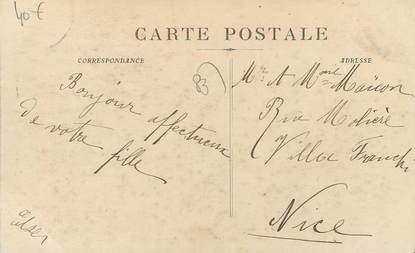 40 €
CARTE POSTALE
CORRESPONDANCE
ADRESSE
83
Bonjour affectueux
de votre
fille
Rue Molière
Villa Franchi
Nice